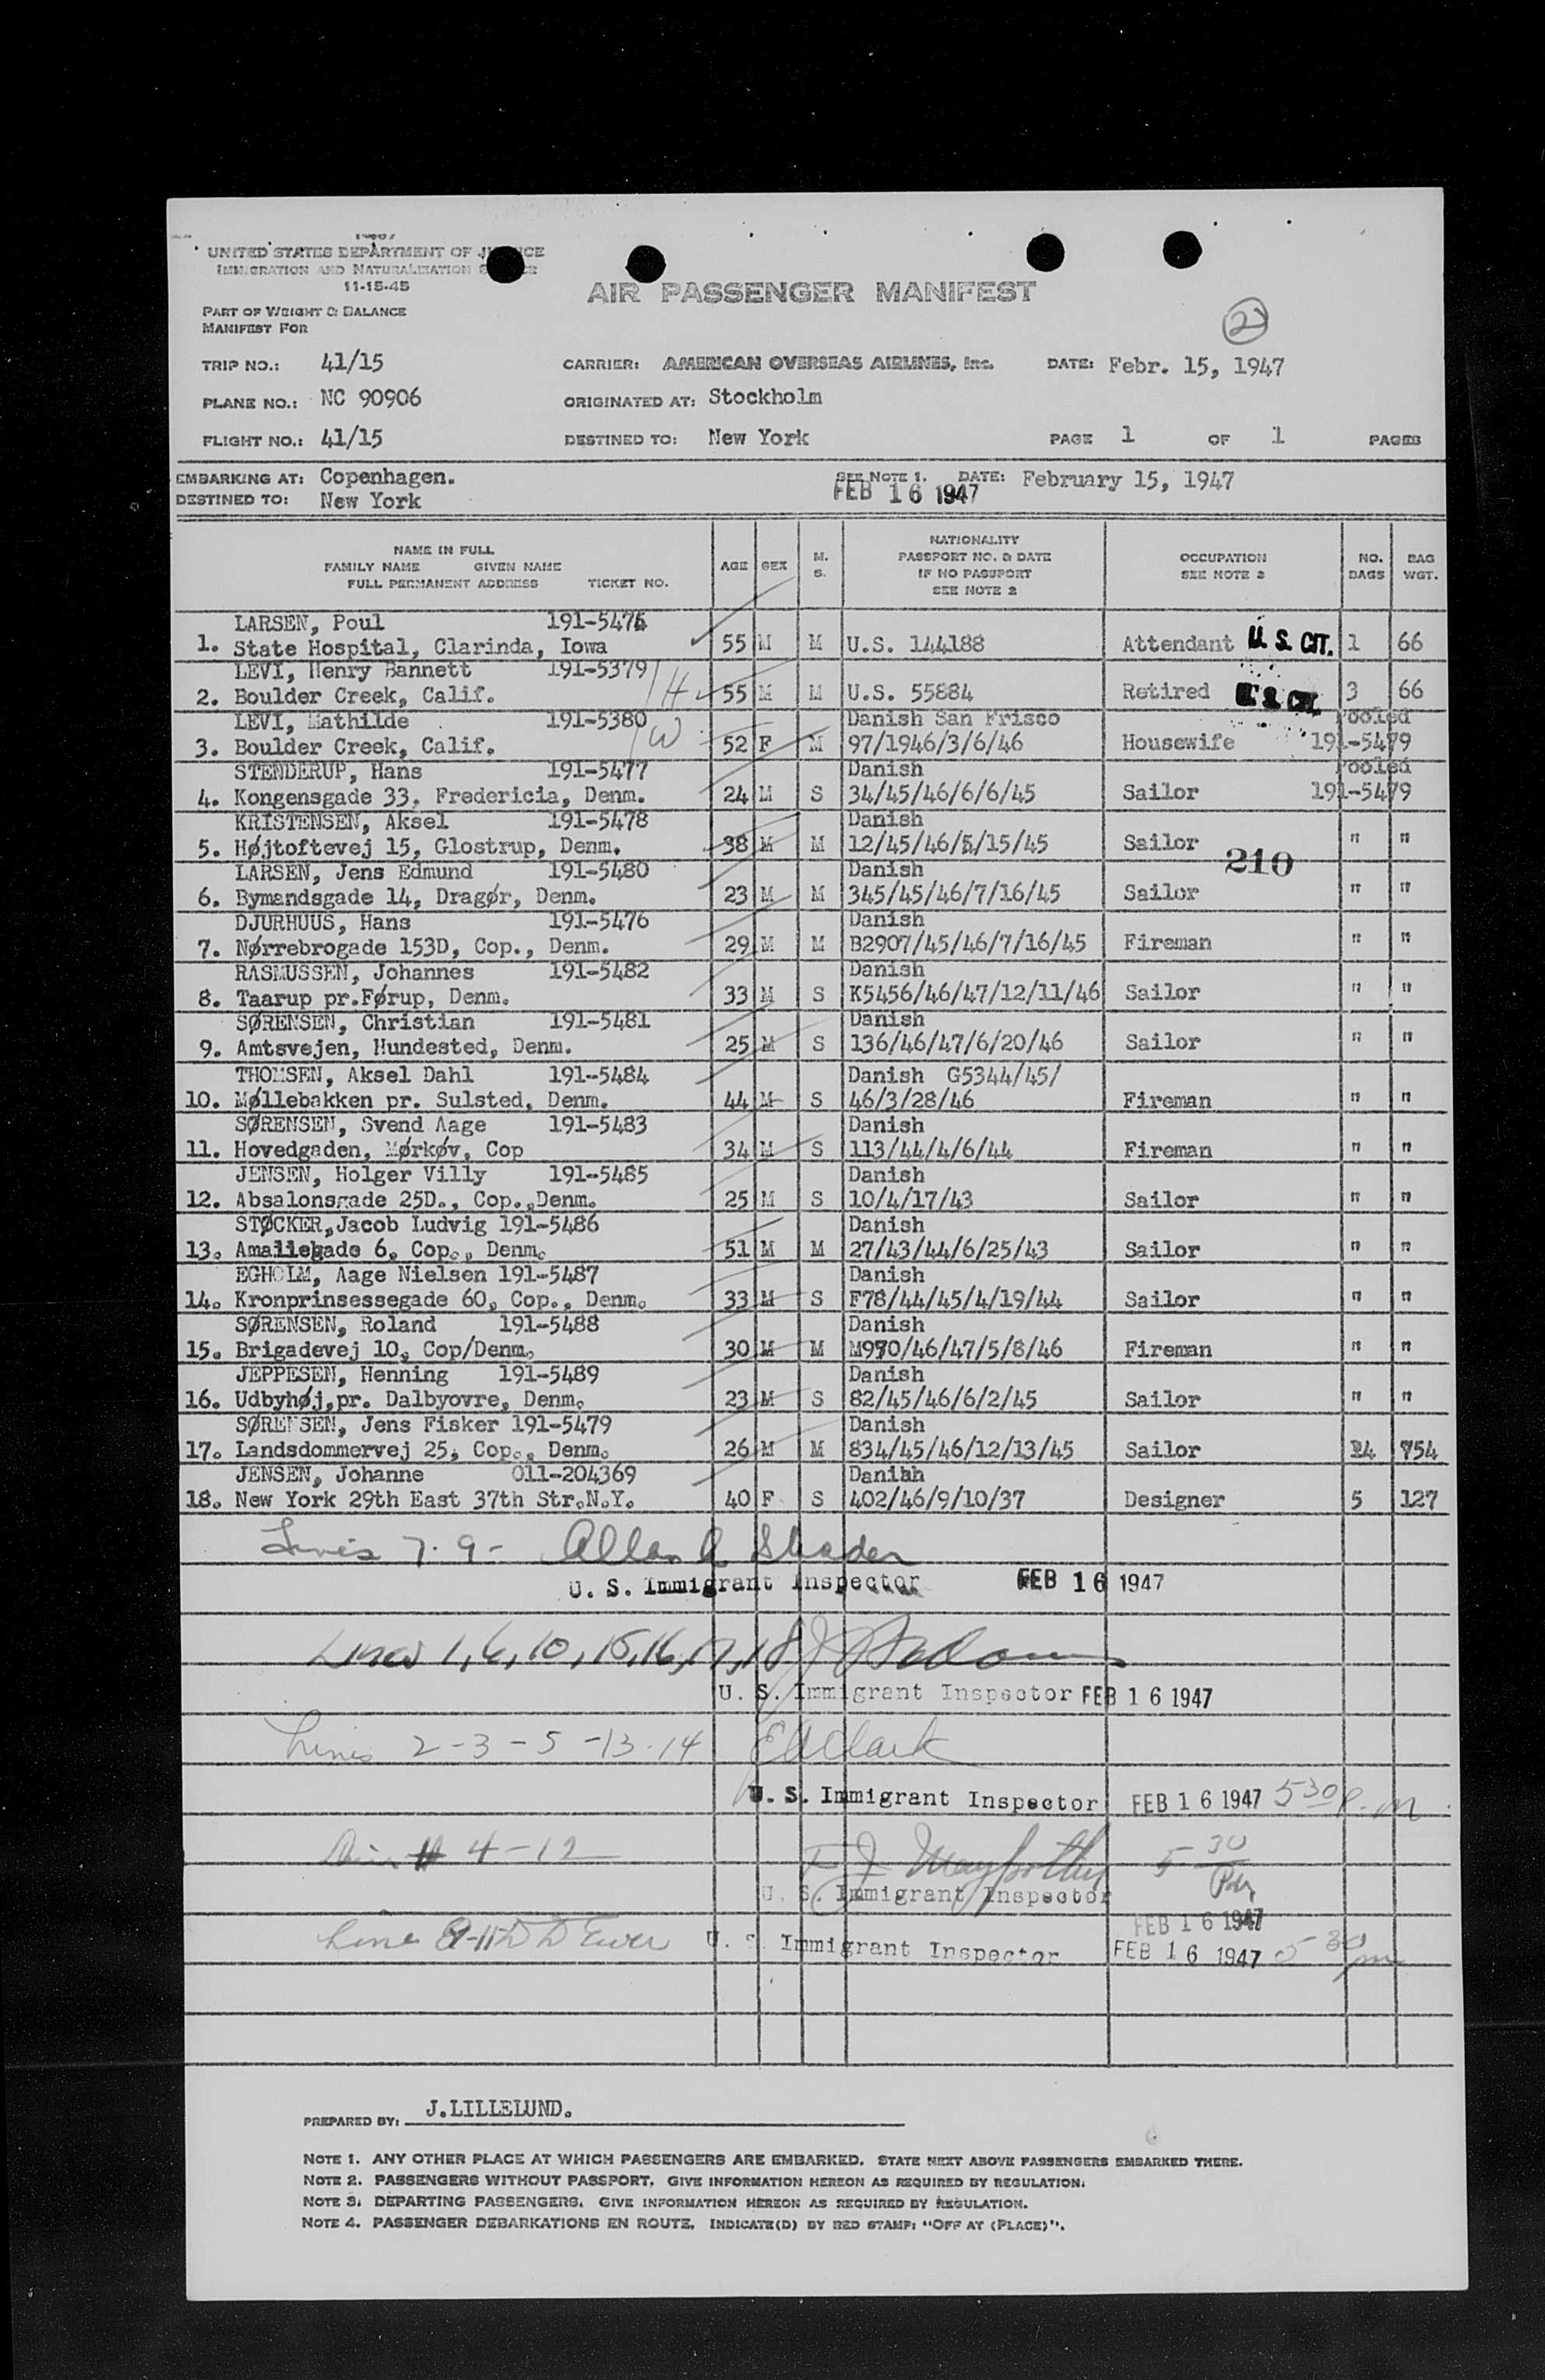 UNITED STATES DEPARTMENT OF JUSTICE
IMMIGRATION AND NATURALIZATION SERVICE
11-15-45
AIR PASSENGER MANIFEST
PART OF WEIGHT & BALANCE
MANIFEST FOR
2
TRIP NO.: 41/15 CARRIER: AMERICAN OVERSEAS AIRLINES, Inc. DATE: Febr. 15, 1947
PLANE NO.: NC 90906 ORIGINATED AT: Stockholm
FLIGHT NO.: 41/15 DESTINED TO: New York PAGE 1 OF 1 PAGES
EMBARKING AT: Copenhagen. SEE NOTE 1. DATE: February 15, 1947
DESTINED TO: New York FEB 16 1947
NAME IN FULL
FAMILY NAME GIVEN NAME
FULL PERMANENT ADDRESS TICKET NO. AGE SEX M. S. NATIONALITY PASSPORT NO. & DATE IF NO PASSPORT SEE NOTE 2 OCCUPATION SEE NOTE 3 NO. BAGS BAG WGT.
LARSEN, Poul 191-5475
1. State Hospital, Clarinda, Iowa 55 M M U.S. 144188 Attendant U.S. CIT. 1 66
LEVI, Henry Bannett 191-5379 H
2. Boulder Creek, Calif. 55 M M U.S. 55884 Retired U.S. CIT. 3 66
LEVI, Mathilde 191-5380 W Danish San Frisco Pooled
3. Boulder Creek, Calif. 52 F M 97/1946/3/6/46 Housewife 191-5479
STENDERUP, Hans 191-5477 Danish Pooled
4. Kongensgade 33, Fredericia, Denm. 24 M S 34/45/46/6/6/45 Sailor 191-5479
KRISTENSEN, Aksel 191-5478 Danish
5. Højtoftevej 15, Glostrup, Denm. 38 M M 12/45/46/5/15/45 Sailor " "
210
LARSEN, Jens Edmund 191-5480 Danish
6. Bymandsgade 14, Dragør, Denm. 23 M M 345/45/46/7/16/45 Sailor " "
DJURHUUS, Hans 191-5476 Danish
7. Nørrebrogade 153D, Cop., Denm. 29 M M B2907/45/46/7/16/45 Fireman " "
RASMUSSEN, Johannes 191-5482 Danish
8. Taarup pr.Førup, Denm. 33 M S K5456/46/47/12/11/46 Sailor " "
SØRENSEN, Christian 191-5481 Danish
9. Amtsvejen, Hundested, Denm. 25 M S 136/46/47/6/20/46 Sailor " "
THOMSEN, Aksel Dahl 191-5484 Danish G5344/45/
10. Møllebakken pr. Sulsted, Denm. 44 M S 46/3/28/46 Fireman " "
SØRENSEN, Svend Aage 191-5483 Danish
11. Hovedgaden, Mørkøv, Cop 34 M S 113/44/4/6/44 Fireman " "
JENSEN, Holger Villy 191-5485 Danish
12. Absalonsgade 25D., Cop.,Denm. 25 M S 10/4/17/43 Sailor " "
STØCKER,Jacob Ludvig 191-5486 Danish
13. Amaliegade 6, Cop., Denm. 51 M M 27/43/44/6/25/43 Sailor " "
EGHOLM, Aage Nielsen 191-5487 Danish
14. Kronprinsessegade 60, Cop., Denm. 33 M S F78/44/45/4/19/44 Sailor " "
SØRENSEN, Roland 191-5488 Danish
15. Brigadevej 10, Cop/Denm. 30 M M M970/46/47/5/8/46 Fireman " "
JEPPESEN, Henning 191-5489 Danish
16. Udbyhøj,pr. Dalbyovre, Denm. 23 M S 82/45/46/6/2/45 Sailor " "
SØRENSEN, Jens Fisker 191-5479 Danish
17. Landsdommervej 25, Cop., Denm. 26 M M 834/45/46/12/13/45 Sailor 14 754
JENSEN, Johanne 011-204369 Danihh
18. New York 29th East 37th Str.N.Y. 40 F S 402/46/9/10/37 Designer 5 127
Lines 7. 9 -
U. S. Immigrant Inspector FEB 16 1947
Lines 1, 6, 10, 15, 16, 17, 18
U. S. Immigrant Inspector FEB 16 1947
Lines 2-3-5-13-14 E A Clark
U. S. Immigrant Inspector FEB 16 1947 5 30 p.m
4-12 5 30
U. S. Immigrant Inspector Pm
FEB 16 1947
Line 8-11 U. S. Immigrant Inspector FEB 16 1947 5 30 pm
PREPARED BY: J.LILLELUND.
NOTE 1. ANY OTHER PLACE AT WHICH PASSENGERS ARE EMBARKED. STATE NEXT ABOVE PASSENGERS EMBARKED THERE.
NOTE 2. PASSENGERS WITHOUT PASSPORT. GIVE INFORMATION HEREON AS REQUIRED BY REGULATION.
NOTE 3. DEPARTING PASSENGERS. GIVE INFORMATION HEREON AS REQUIRED BY REGULATION.
NOTE 4. PASSENGER DEBARKATIONS EN ROUTE. INDICATE(D) BY RED STAMP: "OFF AT (PLACE)".